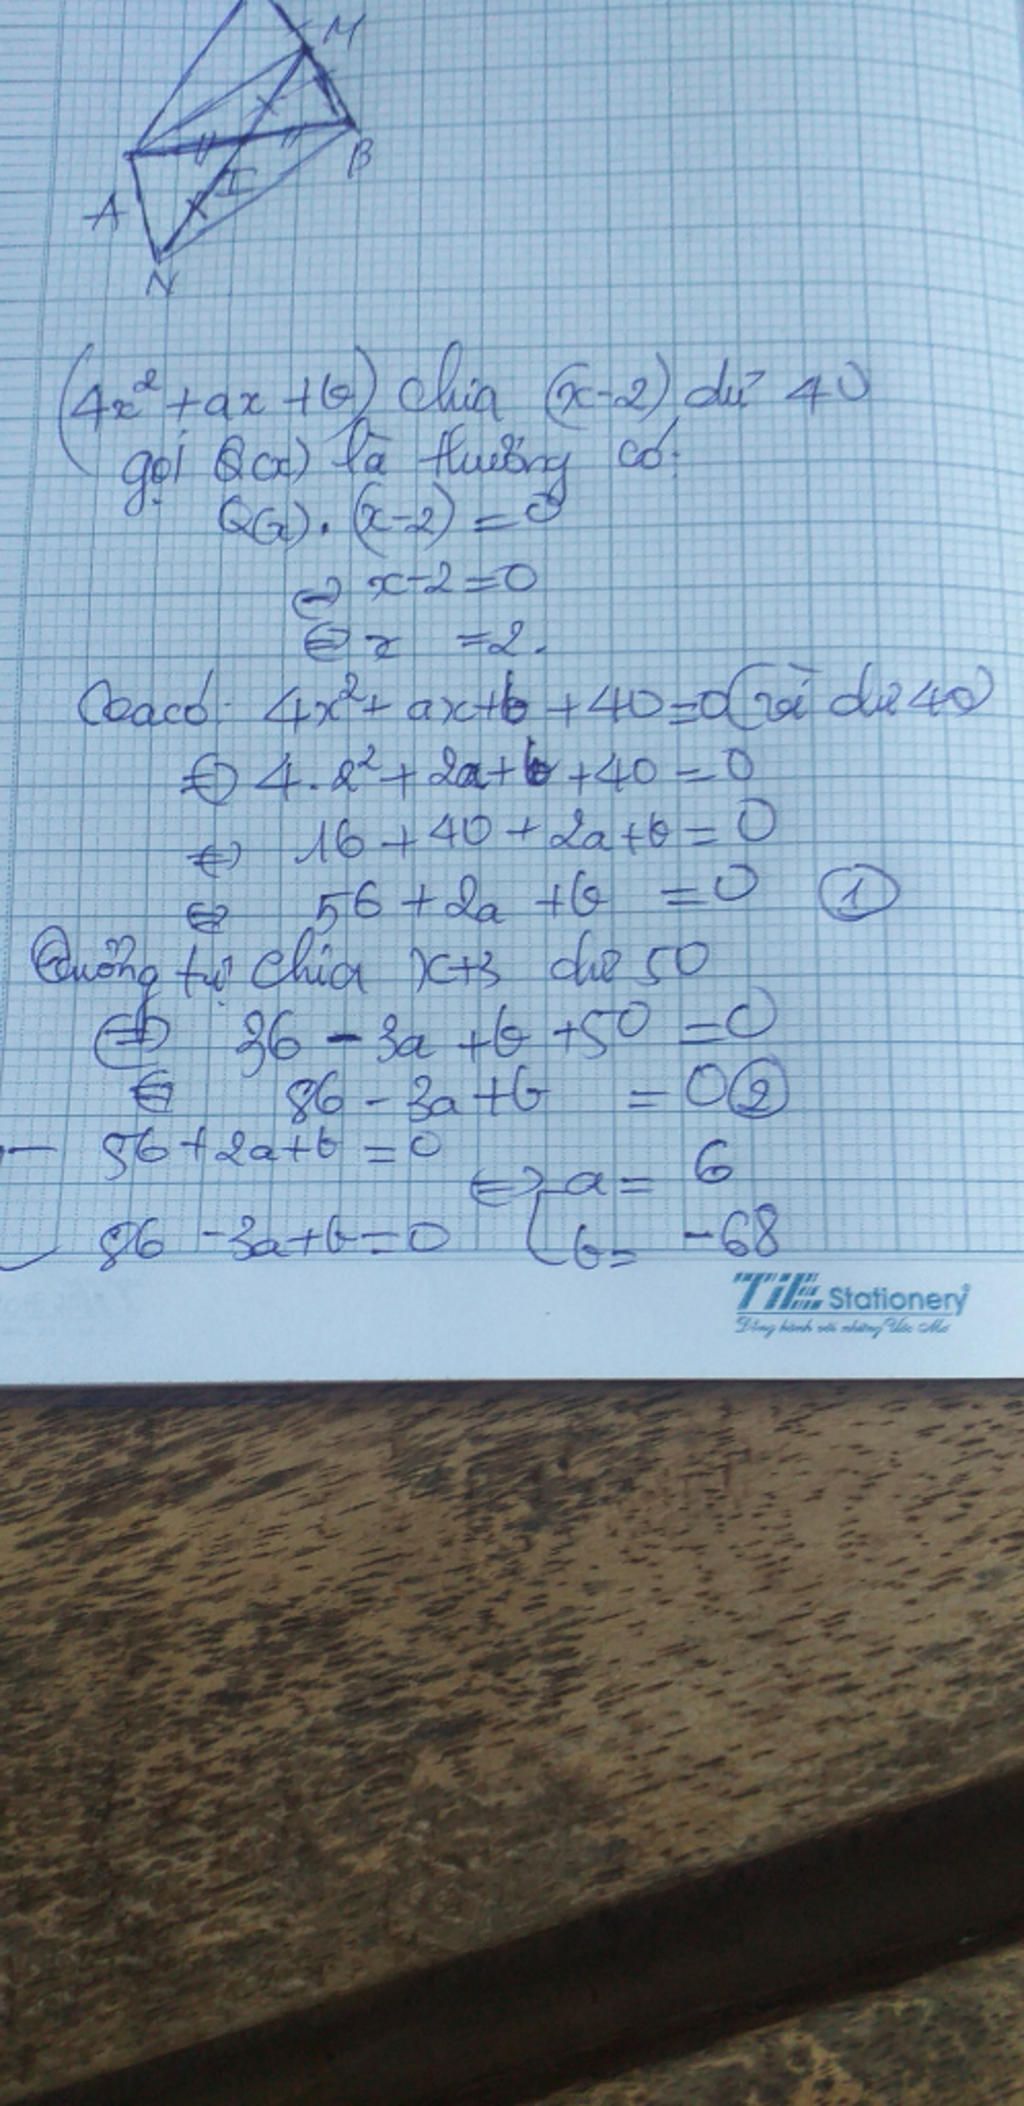 M
B
I
A
N
(4x² + ax + b) chia (x-2) dư 40
gọi Q(x) là thương có:
Q(x). (x-2) = 0
⇔ x-2=0
⇔ x = 2.
Ta có: 4x² + ax+b + 40=0 (vì dư 40)
⇔ 4.2² + 2a+b +40 = 0
⇔ 16 + 40 + 2a+b = 0
⇔ 56 + 2a + b = 0 ①
Tương tự chia x+3 dư 50
⇔ 36 - 3a + b + 50 = 0
⇔ 86 - 3a + b = 0 ②
56 + 2a+b = 0
⇔ a = 6
86 - 3a+b = 0
b = -68
TiE Stationery
Đồng hành với những Ước Mơ